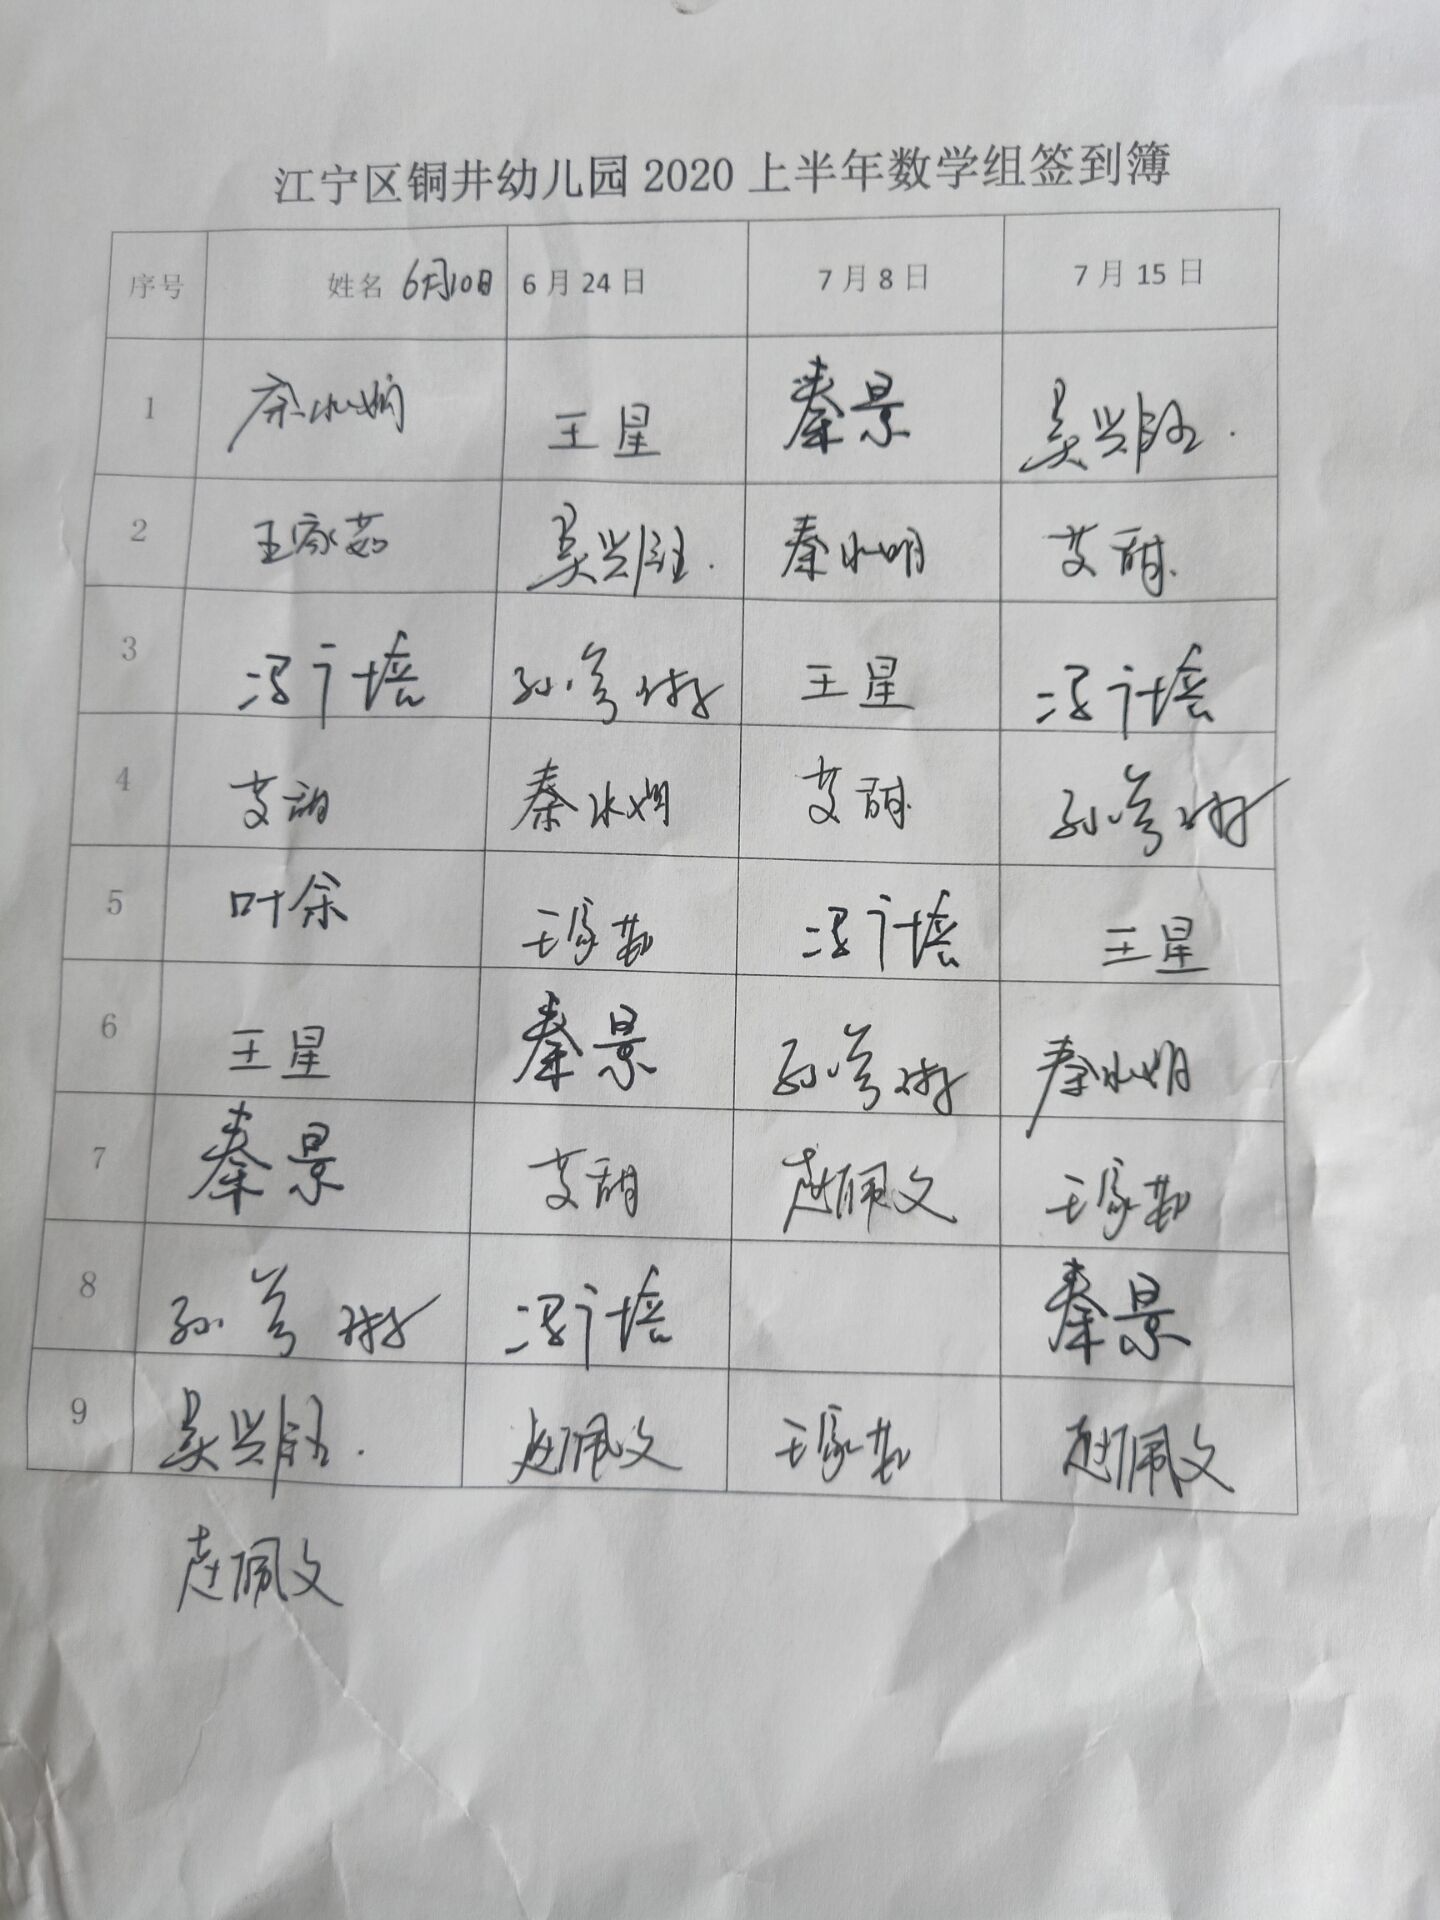 江宁区铜井幼儿园 2020 上半年数学组签到簿
序号 姓名 6月10日 6 月 24 日 7 月 8 日 7 月 15 日
1 王星 秦景 吴兴
2 王家茹 吴兴 秦冰 艾甜
3 冯 培 孙 王星 冯 培
4 艾甜 秦冰 艾甜 孙
5 叶余 王家茹 冯 培 王星
6 王星 秦景 孙 秦冰
7 秦景 艾甜 赵佩文 王家茹
8 孙 冯 培 秦景
9 吴兴 赵佩文 王家茹 赵佩文
赵佩文